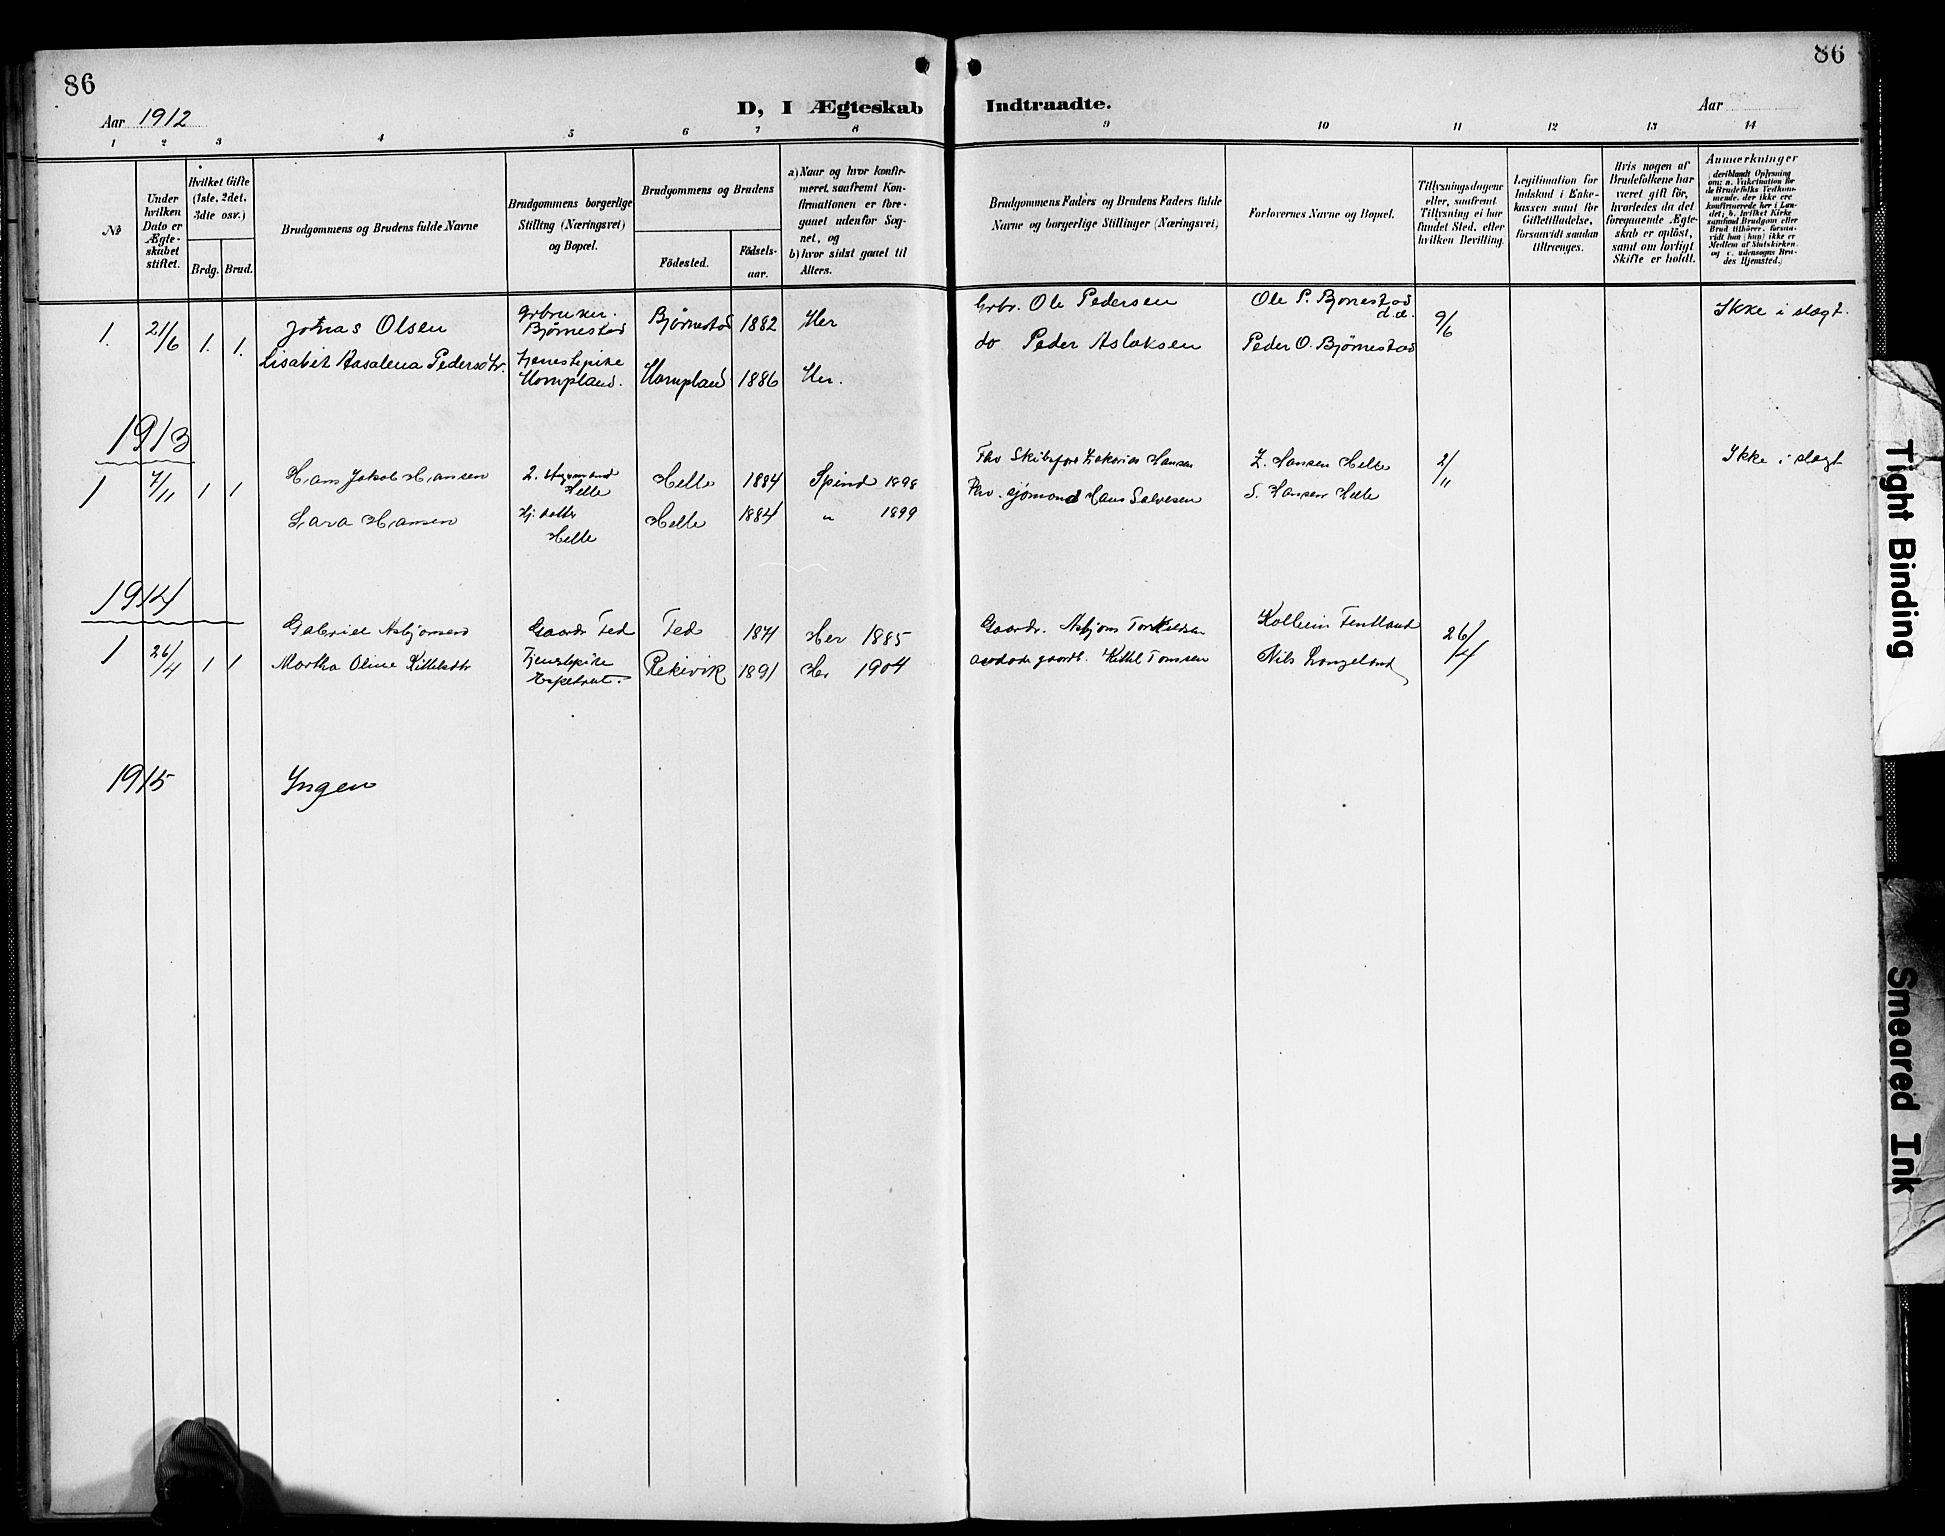 86
86
Aar 1912
D, I Ægteskab Indtraadte.
Aar
1 2 3 4 5 6 7 8 9 10 11 12 13 14
No
Under hvilken Dato er Ægteskabet stiftet.
Hvilket Gifte (1ste, 2det, 3die osv.)
Brdg. Brud.
Brudgommens og Brudens fulde Navne
Brudgommens borgerlige Stilling (Næringsvei) og Bopæl.
Brudgommens og Brudens
Födested.
Födsels-aar.
a) Naar og hvor konfirmeret, saafremt Konfirmationen er foregaaet udenfor Sognet, og
b) hvor sidst gaaet til Alters.
Brudgommens Faders og Brudens Faders fulde Navne og borgerlige Stillinger (Næringsvei)
Forlovernes Navne og Bopæl.
Tillysningsdagene eller, saafremt Tillysning ei har fundet Sted, efter hvilken Bevilling.
Legitimation for Indskud i Enkekassen samt for Giftetilladelse, forsaavidt saadan tiltrænges.
Hvis nogen af Brudefolkene har været gift för, hvorledes da det foregaaende Ægteskab er oplöst, samt om lovligt Skifte er holdt.
Anmærkninger
(deriblandt Oplysning om: a. Vakcination for de Brudefolks Vedkommende, der ikke ere konfirmerede her i Landet; b. hvilket Kirkesamfund Brudgom eller Brud tilhører, forsaavidt han (hun) ikke er Medlem af Statskirken, og c. udensogns Brudes Hjemsted.)
1. 21/6 1. 1. Johas Olsen Grbruker. Bjørnestad Bjørnestad 1882 Her Grbr. Ole Pedersen Ole P. Bjørnestad d.æ. 9/6 Ikke i slægt.
Lisabet Aasalena Pedersdtr. tjenestepike Hompland. Hompland 1886 Her. do Peder Aslaksen Peder O. Bjørnestad
1913
1 7/11 1 1 Hans Jakob Hansen 2. Styrmand Helle Helle 1884 Spind 1898 Fhv Skibsfører Zakarias Hansen Z. Hansen Helle 2/11 Ikke i slægt
Lava Hansen Hj. datter Helle Helle 1884 " 1899 Fhv. sjømand Hans Salvesen S. Hansen Helle
1914
1 26/4 1 1 Gabriel Asbjørnsen Gaardr Fed Fed 1871 Her 1885 Gaardr. Asbjørn Torkildsen Kolbein Fentland 26/4
Martha Oline Kittelsdtr Tjenestepike Espetveit. Rekevik 1891 Her 1904 gaardb. Kittel Tomssen Nils Langeland
1915 Ingen
Tight Binding
Smeared Ink